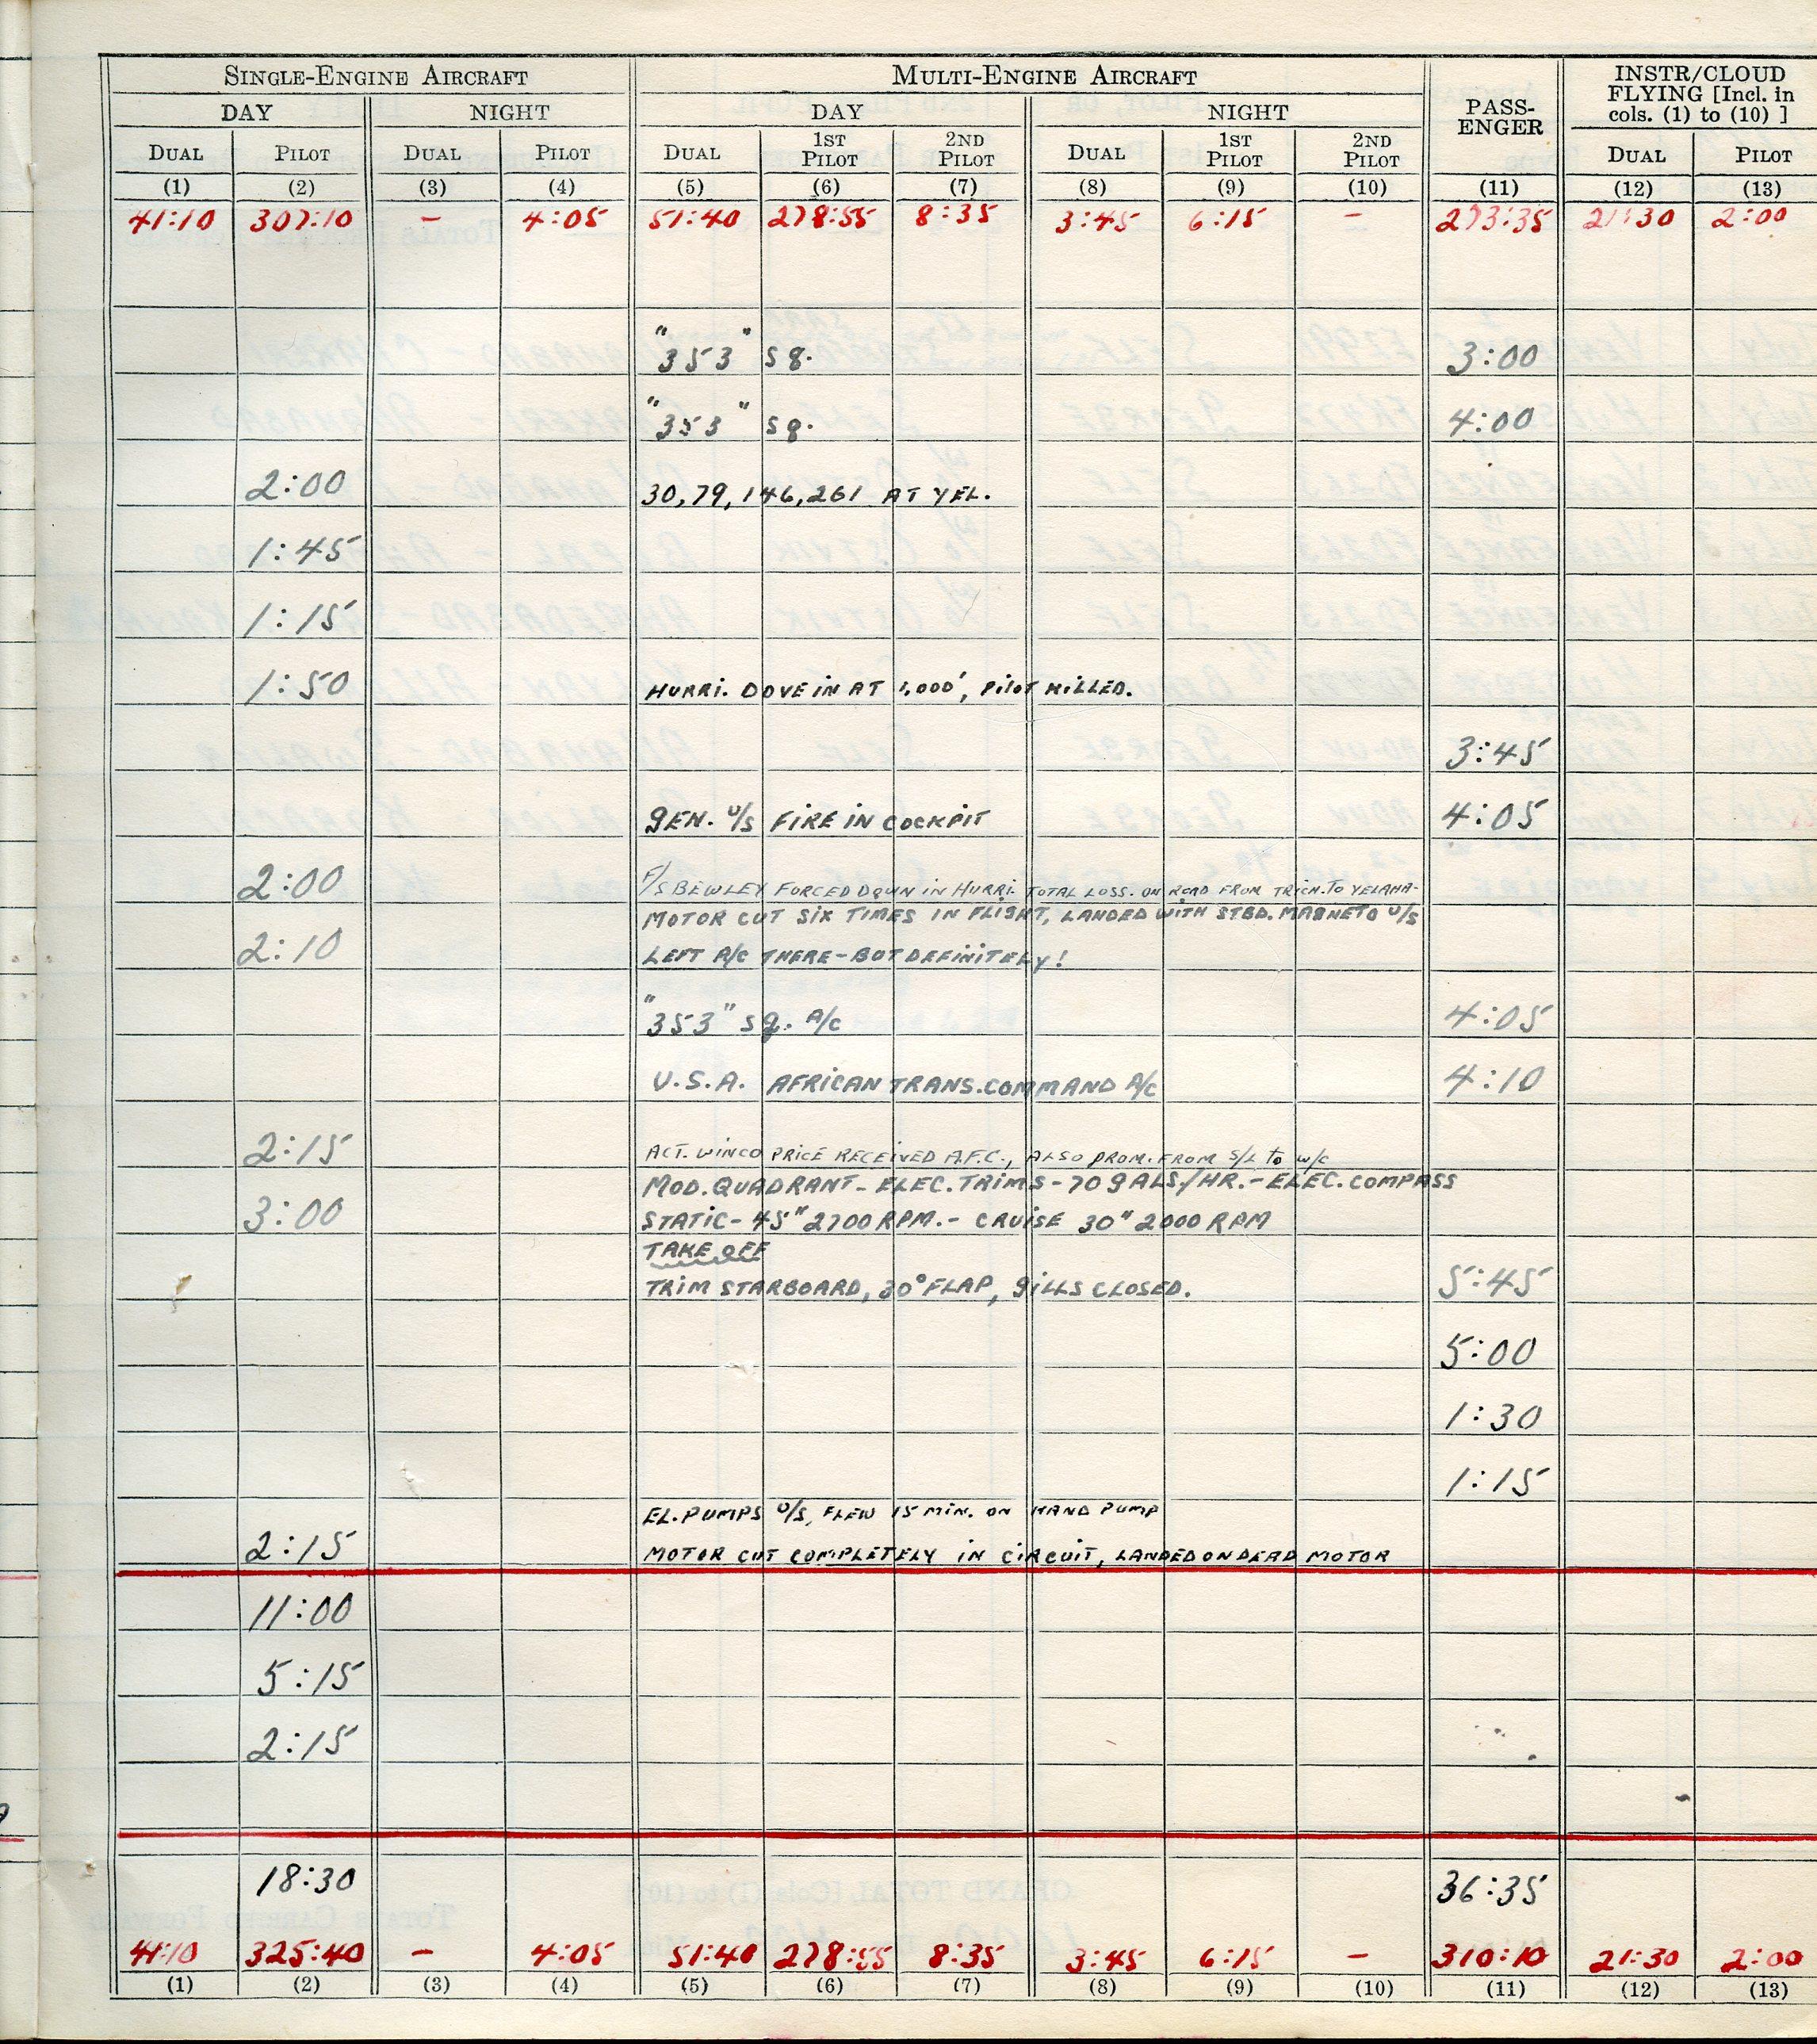 SINGLE-ENGINE AIRCRAFT MULTI-ENGINE AIRCRAFT PASS-ENGER INSTR/CLOUD FLYING [Incl. in cols. (1) to (10) ]
DAY NIGHT DAY NIGHT
DUAL PILOT DUAL PILOT DUAL 1ST PILOT 2ND PILOT DUAL 1ST PILOT 2ND PILOT DUAL PILOT
(1) (2) (3) (4) (5) (6) (7) (8) (9) (10) (11) (12) (13)
41:10 307:10 – 4:05 51:40 278:55 8:35 3:45 6:15 – 273:35 21:30 2:00
"353" Sq. 3:00
"353" Sq. 4:00
2:00 30, 79, 146, 261 AT YEL.
1:45
1:15
1:50 HURRI. DOVE IN AT 1,000', PILOT KILLED.
3:45
GEN. U/S FIRE IN COCKPIT 4:05
2:00 F/S BEWLEY FORCED DOWN IN HURRI. TOTAL LOSS. ON ROAD FROM TRICH. TO YELAHA-
MOTOR CUT SIX TIMES IN FLIGHT, LANDED WITH STBD. MAGNETO U/S
2:10 LEFT A/C THERE – BUT DEFINITELY!
"353" Sq. A/C 4:05
U.S.A. AFRICAN TRANS. COMMAND A/C 4:10
2:15 ACT. WINCO PRICE RECEIVED A.F.C., ALSO PROM. FROM S/L to W/C
MOD. QUADRANT – ELEC. TRIMS – 70 GALS./HR. – ELEC. COMPASS
3:00 STATIC – 45" 2700 RPM. – CRUISE 30" 2000 RPM
TAKE OFF
TRIM STARBOARD, 30° FLAP, GILLS CLOSED. 5:45
5:00
1:30
1:15
EL. PUMPS U/S, FLEW 15 MIN. ON HAND PUMP
2:15 MOTOR CUT COMPLETELY IN CIRCUIT, LANDED ON DEAD MOTOR
11:00
5:15
2:15
18:30 36:35
41:10 325:40 – 4:05 51:40 278:55 8:35 3:45 6:15 – 310:10 21:30 2:00
(1) (2) (3) (4) (5) (6) (7) (8) (9) (10) (11) (12) (13)